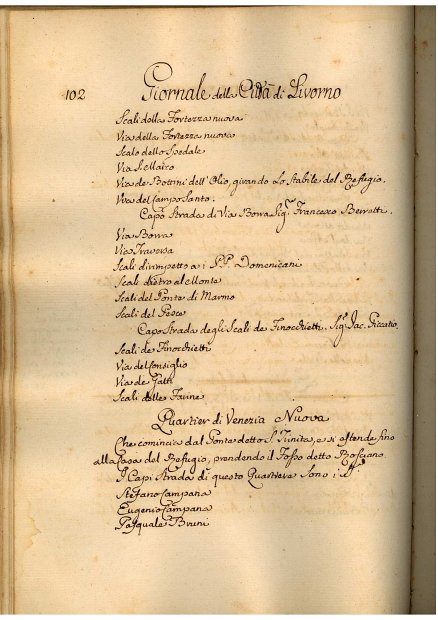 102 Giornale della Città di Livorno
Scali della Fortezza nuova
Via della Fortezza nuova
Scalo dello Spedale
Via S. Marco
Via de Bottini dell'Olio, girando lo Stabile del Refugio.
Via del Campo Santo.
Capo Strada di Via Borra Sigr. Francesco Berrotti.
Via Borra
Via Traversa
Scali dirimpetto a i PP. Domenicani
Scali dietro al Monte
Scali del Ponte di Marmo
Scali del Pesce
Capo Strada degli Scali de Finocchietti, Sigr. Jac. Piccatio
Scali de Finocchietti
Via del Consiglio
Via de Gatti
Scali delle
Quartier di Venezia Nuova
Che comincia dal Ponte detto S. Trinita, e si estende fino
alla Casa del Refugio, prendendo il Fosso detto
I Capi Strada di questo Quartiere sono i
Stefano Campana
Eugenio Campana
Pasquale Bruni